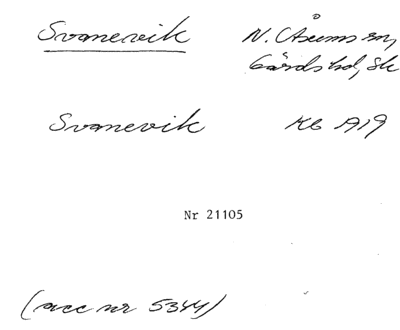 Svanevik N. Åsums sn,
Gärds hd, Sk
Svanevik Kb 1919
Nr 21105
(acc nr 5344)